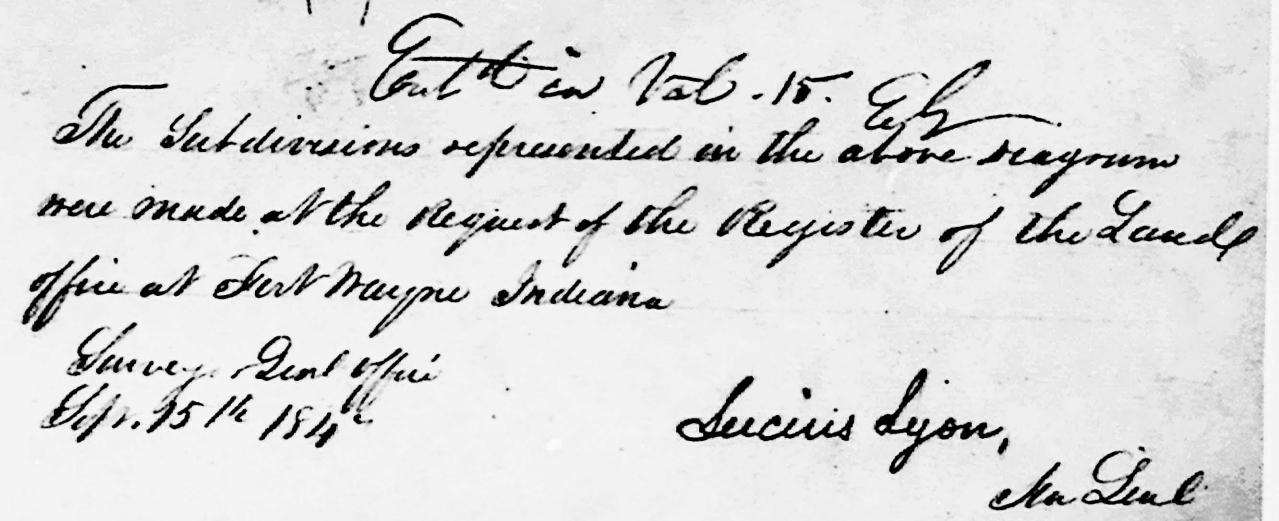 Ent^d in Vol. 15.
The Subdivisions represented in the above
were made at the Request of the Register of the Land
office at Fort Wayne Indiana
Survey. Genl office
Sept. 15th 184
Lucius Lyon,
Genl